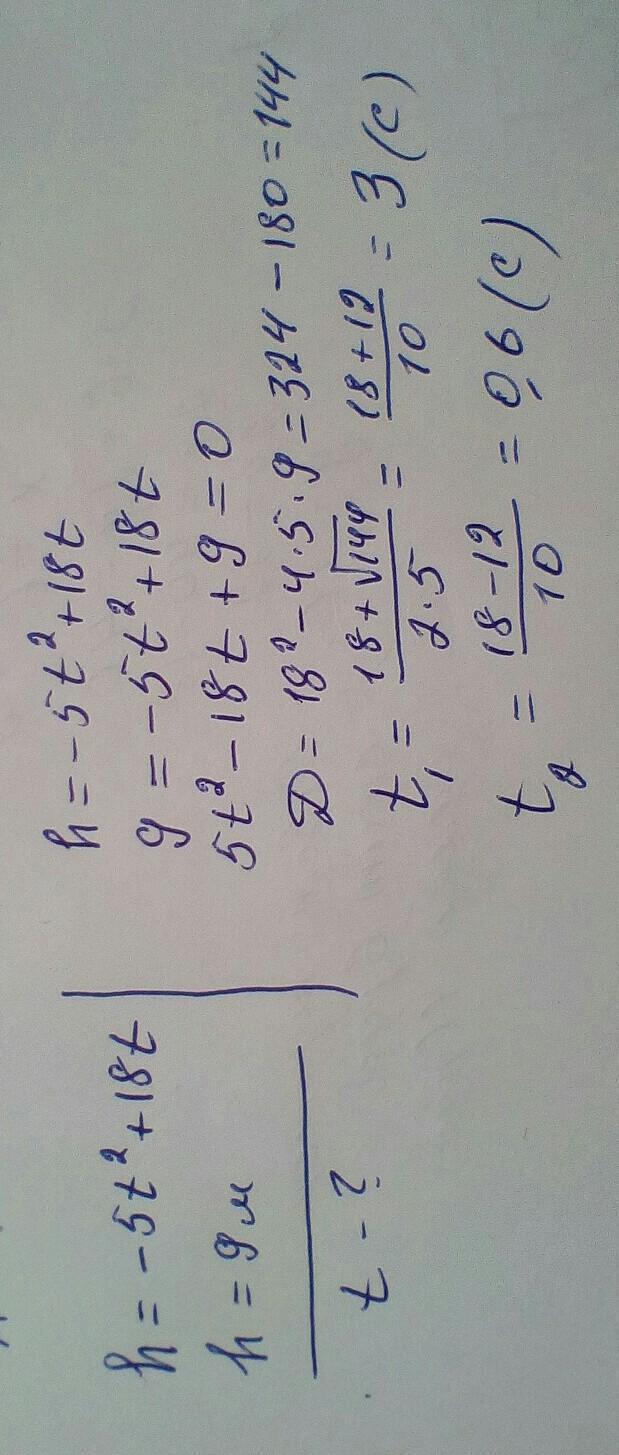 h = -5t² + 18t
h = 9 м
t - ?
h = -5t² + 18t
9 = -5t² + 18t
5t² - 18t + 9 = 0
D = 18² - 4·5·9 = 324 - 180 = 144
t₁ = (18 + √144)/(2·5) = (18 + 12)/10 = 3 (с)
t₂ = (18 - 12)/10 = 0,6 (с)